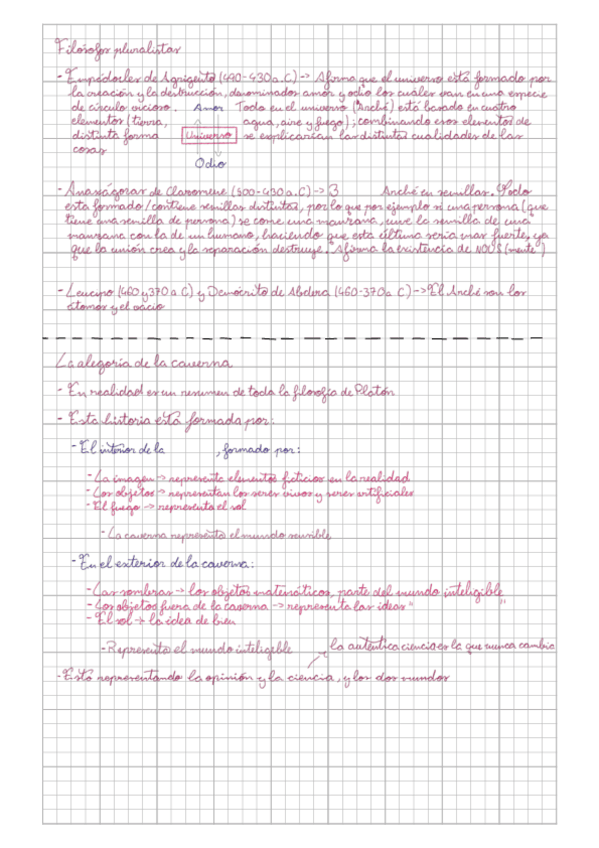 Filósofos pluralistas
- Empédocles de Agrigento (490-430 a.C) -> Afirma que el universo está formado por
la creación y la destrucción, denominados amor y odio los cuáles van en una especie
de círculo vicioso. Amor Todo en el universo (Arché) está basado en cuatro
elementos (tierra, agua, aire y fuego); combinando esos elementos de
distinta forma Universo se explicarían las distintas cualidades de las
cosas
Odio
- Anaxágoras de Clazomene (500-430 a.C) -> 3 Arché en semillas. Todo
esta formado/contiene semillas distintas, por lo que por ejemplo si una persona (que
tiene una semilla de persona) se come una manzana, une la semilla de una
manzana con la de un humano, haciendo que esta última sería mas fuerte, ya
que la unión crea y la separación destruye. Afirma la existencia de NOUS (mente")
- Leucipo (460 y 370 a C) y Demócrito de Abdera (460-370 a C) -> El Arché son los
átomos y el vacio
La alegoría de la caverna
- En realidad es un resumen de toda la filosofía de Platón
- Esta historia está formada por:
- El interior de la , formado por:
- La imagen -> representa elementos ficticios en la realidad
- Los objetos -> representan los seres vivos y seres artificiales
- El fuego -> representa el sol
- La caverna representa el mundo sensible
- En el exterior de la caverna:
- Las sombras -> los objetos matemáticos, parte del mundo inteligible
- Los objetos fuera de la caserna -> representa las ideas " "
- El sol -> la idea de bien
- Representa el mundo inteligible
la autentica ciencia es la que nunca cambia
- Está representando la opinión y la ciencia, y los dos mundos